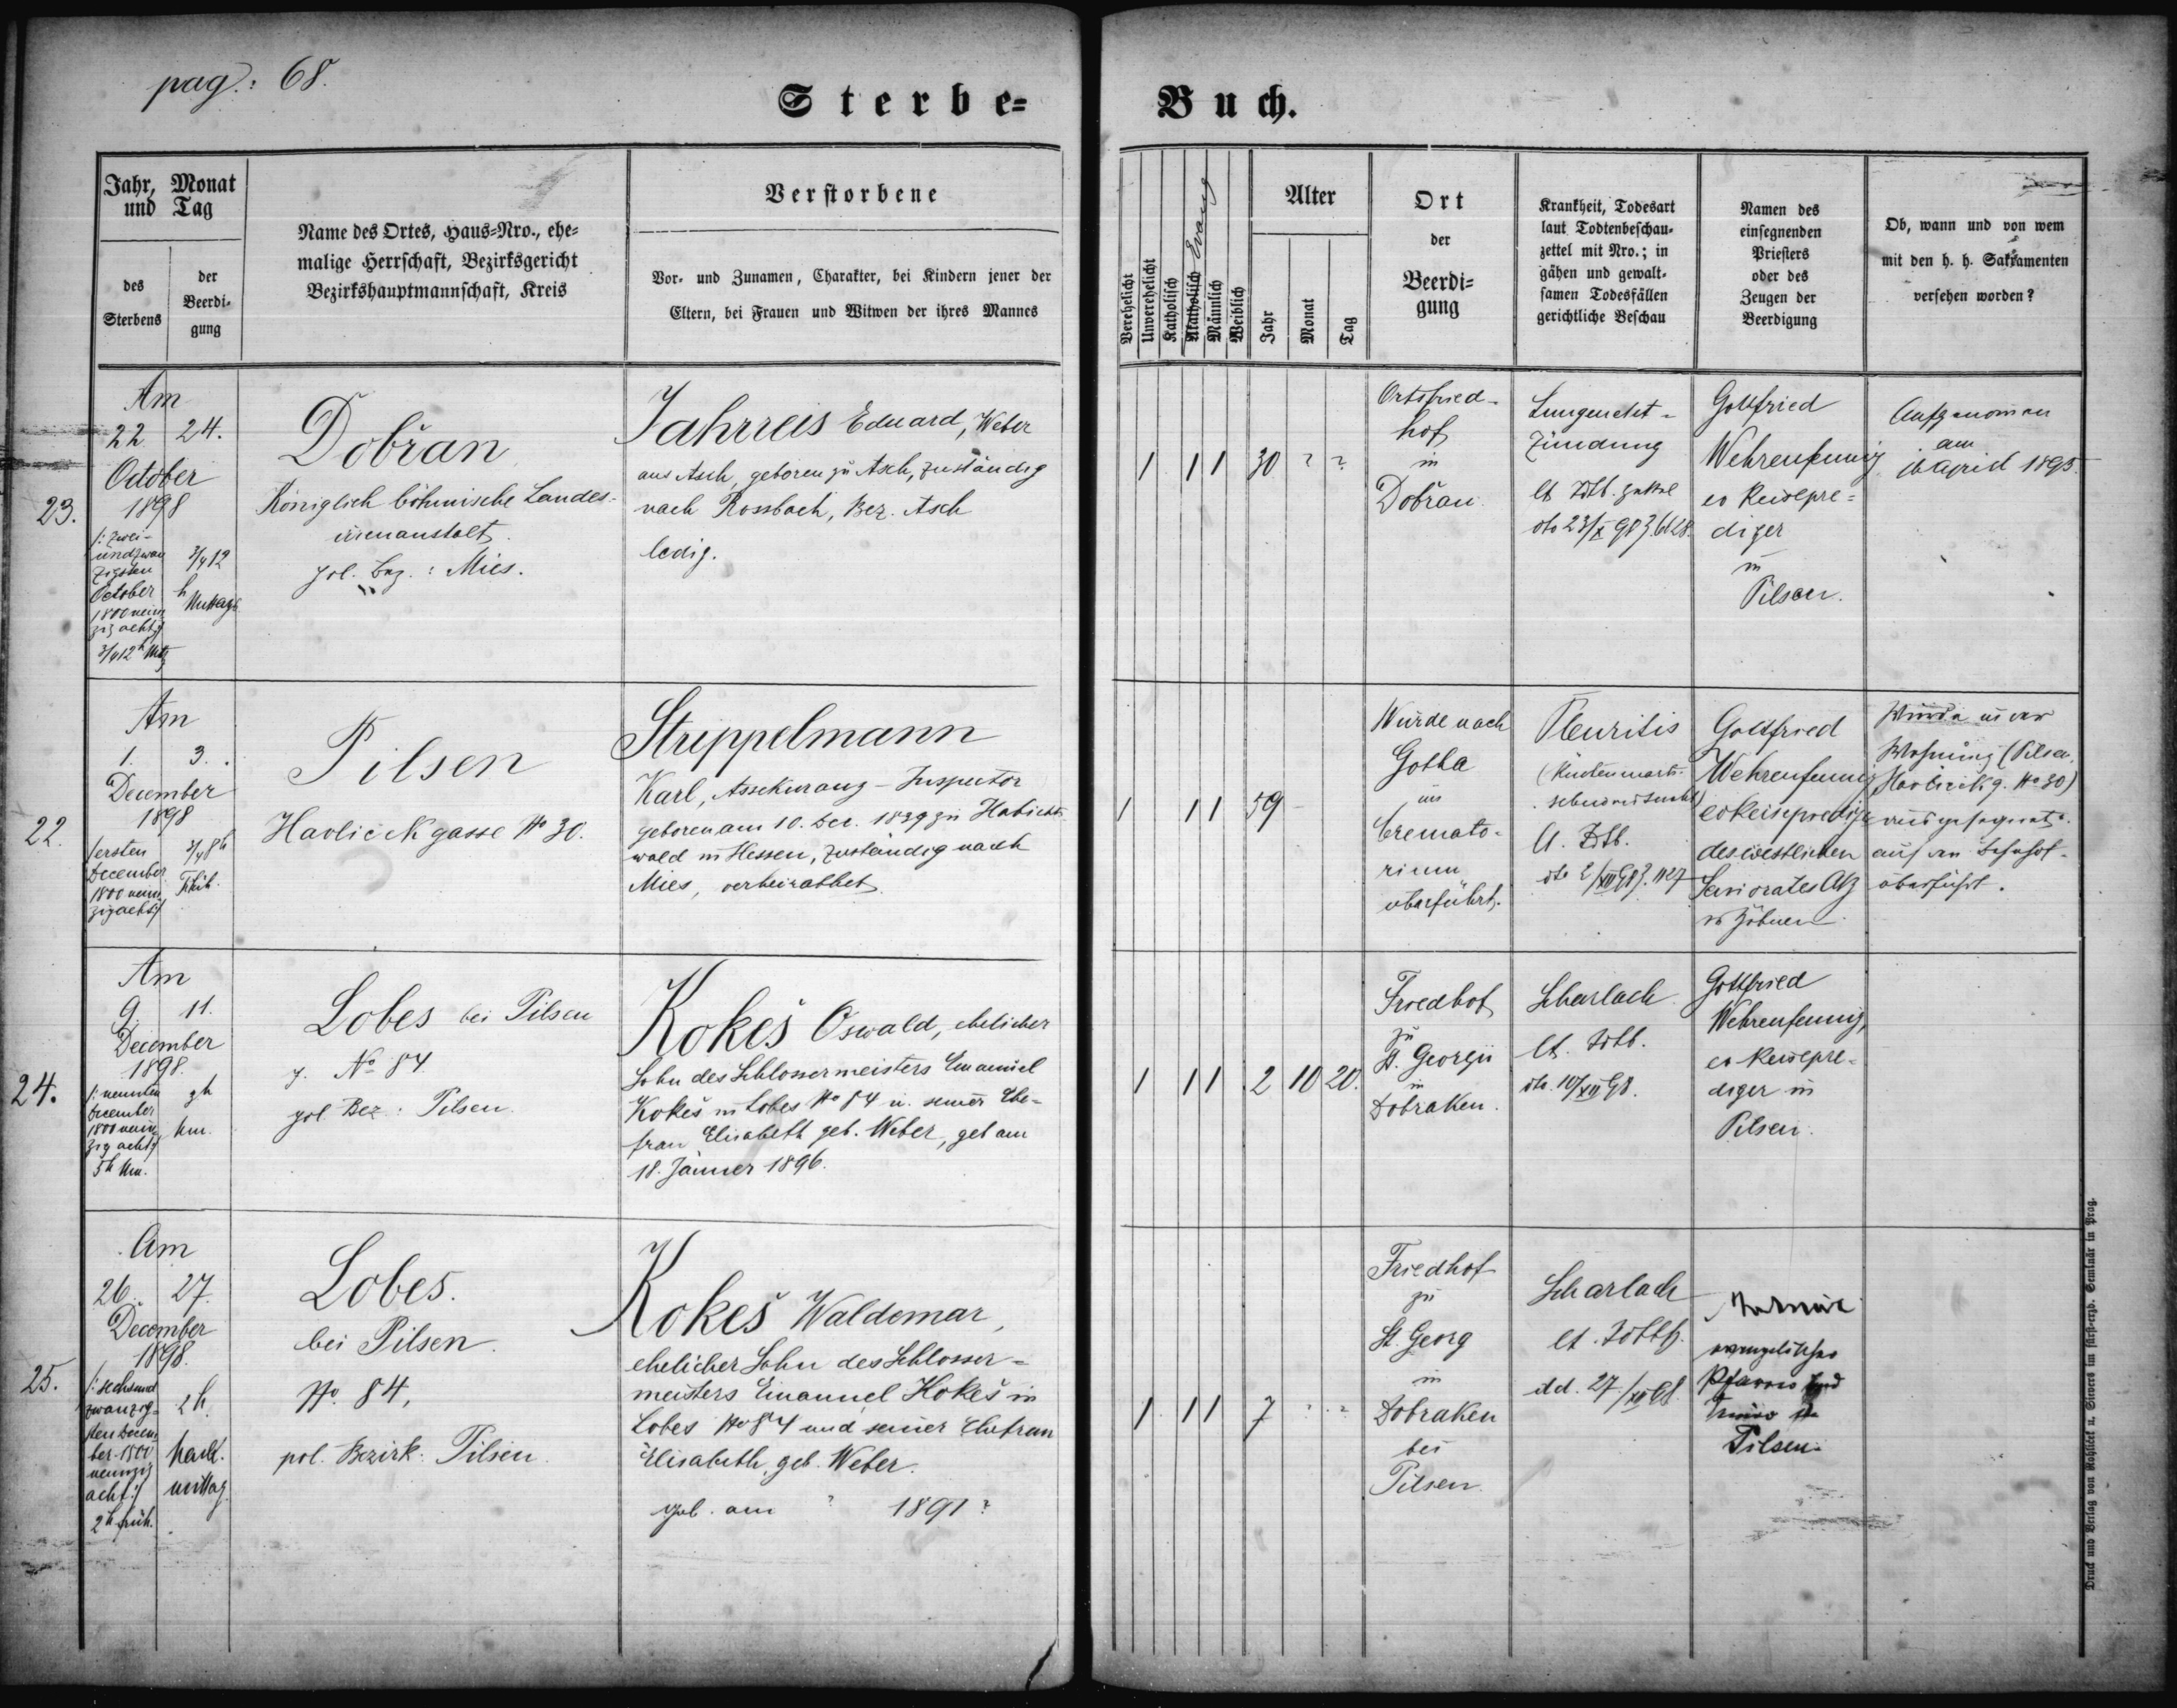 pag.: 68.
Sterbe-Buch.
Jahr, Monat und Tag
des Sterbens
der Beerdi-
gung
Name des Ortes, Haus-Nro., ehe-
malige Herrschaft, Bezirksgericht
Bezirkshauptmannschaft, Kreis
Verstorbene
Vor- und Zunamen, Charakter, bei Kindern jener der
Eltern, bei Frauen und Witwen der ihres Mannes
Verehelicht
Unverehelicht
Katholisch
Akatholisch Evang
Männlich
Weiblich
Alter
Jahr
Monat
Tag
Ort
der
Beerdi-
gung
Krankheit, Todesart
laut Todtenbeschau-
zettel mit Nro.; in
gähen und gewalt-
samen Todesfällen
gerichtliche Beschau
Namen des
einsegnenden
Priesters
oder des
Zeugen der
Beerdigung
Ob, wann und von wem
mit den h. h. Sakramenten
versehen worden?
23.
Am
22 24.
October
1898
/: zwei-
undzwan
zigsten
October
1800 neun
zig acht:/
3/4 12 h Mttg
3/4 12
h
Mittags
Dobřan
Königlich böhmische Landes-
irrenanstalt.
pol. Bez.: Mies.
Jahrreis Eduard, Weber
aus Asch, geboren zu Asch, zuständig
nach Rossbach, Bez. Asch
ledig.
1 1 1 30 ? ?
Ortsfried-
hof
in
Dobřan
Lungenent-
zündung
lt. Todtb. zettel
dto 23/X 98 Z. 6128.
Gottfried
Wehrenfennig
ev Reisepre-
diger
in
Pilsen.
Aufgenommen
am
April 1895.
22.
Am
1. 3.
December
1898
/ersten
December
1800 neun
zig acht:/
3/4 8 h
Früh.
Pilsen
Havlicekgasse No 30.
Strippelmann
Karl, Assekuranz-Inspector
geboren am 10. Dec. 1839 zu Habichts
wald in Hessen, zuständig nach
Mies, verheirathet
1 1 1 59
Wurde nach
Gotha
ins
Cremato-
rium
überführt.
Pleuritis
lt. Todtb.
dto 2/XII 98 Z. 1127
Gottfried
Wehrenfennig
ev Reiseprediger
des westlichen
Seniorates AB
in Böhmen
Wurde in der
Wohnung (Pilsen,
Havlicekg. No 30)
eingesegnet u.
auf den Bahnhof
überführt.
24.
Am
9. 11.
December
1898.
/: neunten
December
1800 neun
zig acht:/
5 h Nm.
Nm.
Lobes bei Pilsen
No 84.
pol. Bez.: Pilsen.
Kokeš Oswald, ehelicher
Sohn des Schlossermeisters Emanuel
Kokeš in Lobes No 84 u. seiner Ehe-
frau Elisabeth geb. Weber, geb am
18. Jänner 1896.
1 1 1 2 10 20.
Friedhof
zu
St. Georgii
in
Dobraken.
Scharlach
lt. Todtb.
dto. 10/XII 98.
Gottfried
Wehrenfennig,
ev Reisepre-
diger in
Pilsen.
25.
Am
26. 27.
December
1898.
/: sechsund
zwanzig-
sten Decem
ber 1800
neunzig
acht:/
2 h früh.
2 h.
Nach-
mittag.
Lobes.
bei Pilsen.
No. 84,
pol. Bezirk: Pilsen.
Kokeš Waldemar,
ehelicher Sohn des Schlosser-
meisters Emanuel Kokeš in
Lobes No 84 und seiner Ehefrau
Elisabeth, geb. Weber.
geb. am ? 1891?
1 1 1 7 ? ?
Friedhof
zu
St. Georg
in
Dobraken
bei
Pilsen.
Scharlach
lt. Todtb.
dd. 27/XII 98.
evangelischer
Pfarrer
Pilsen.
Druck und Verlag von Rohliček u. Sievers im fürst-erzb. Seminär in Prag.